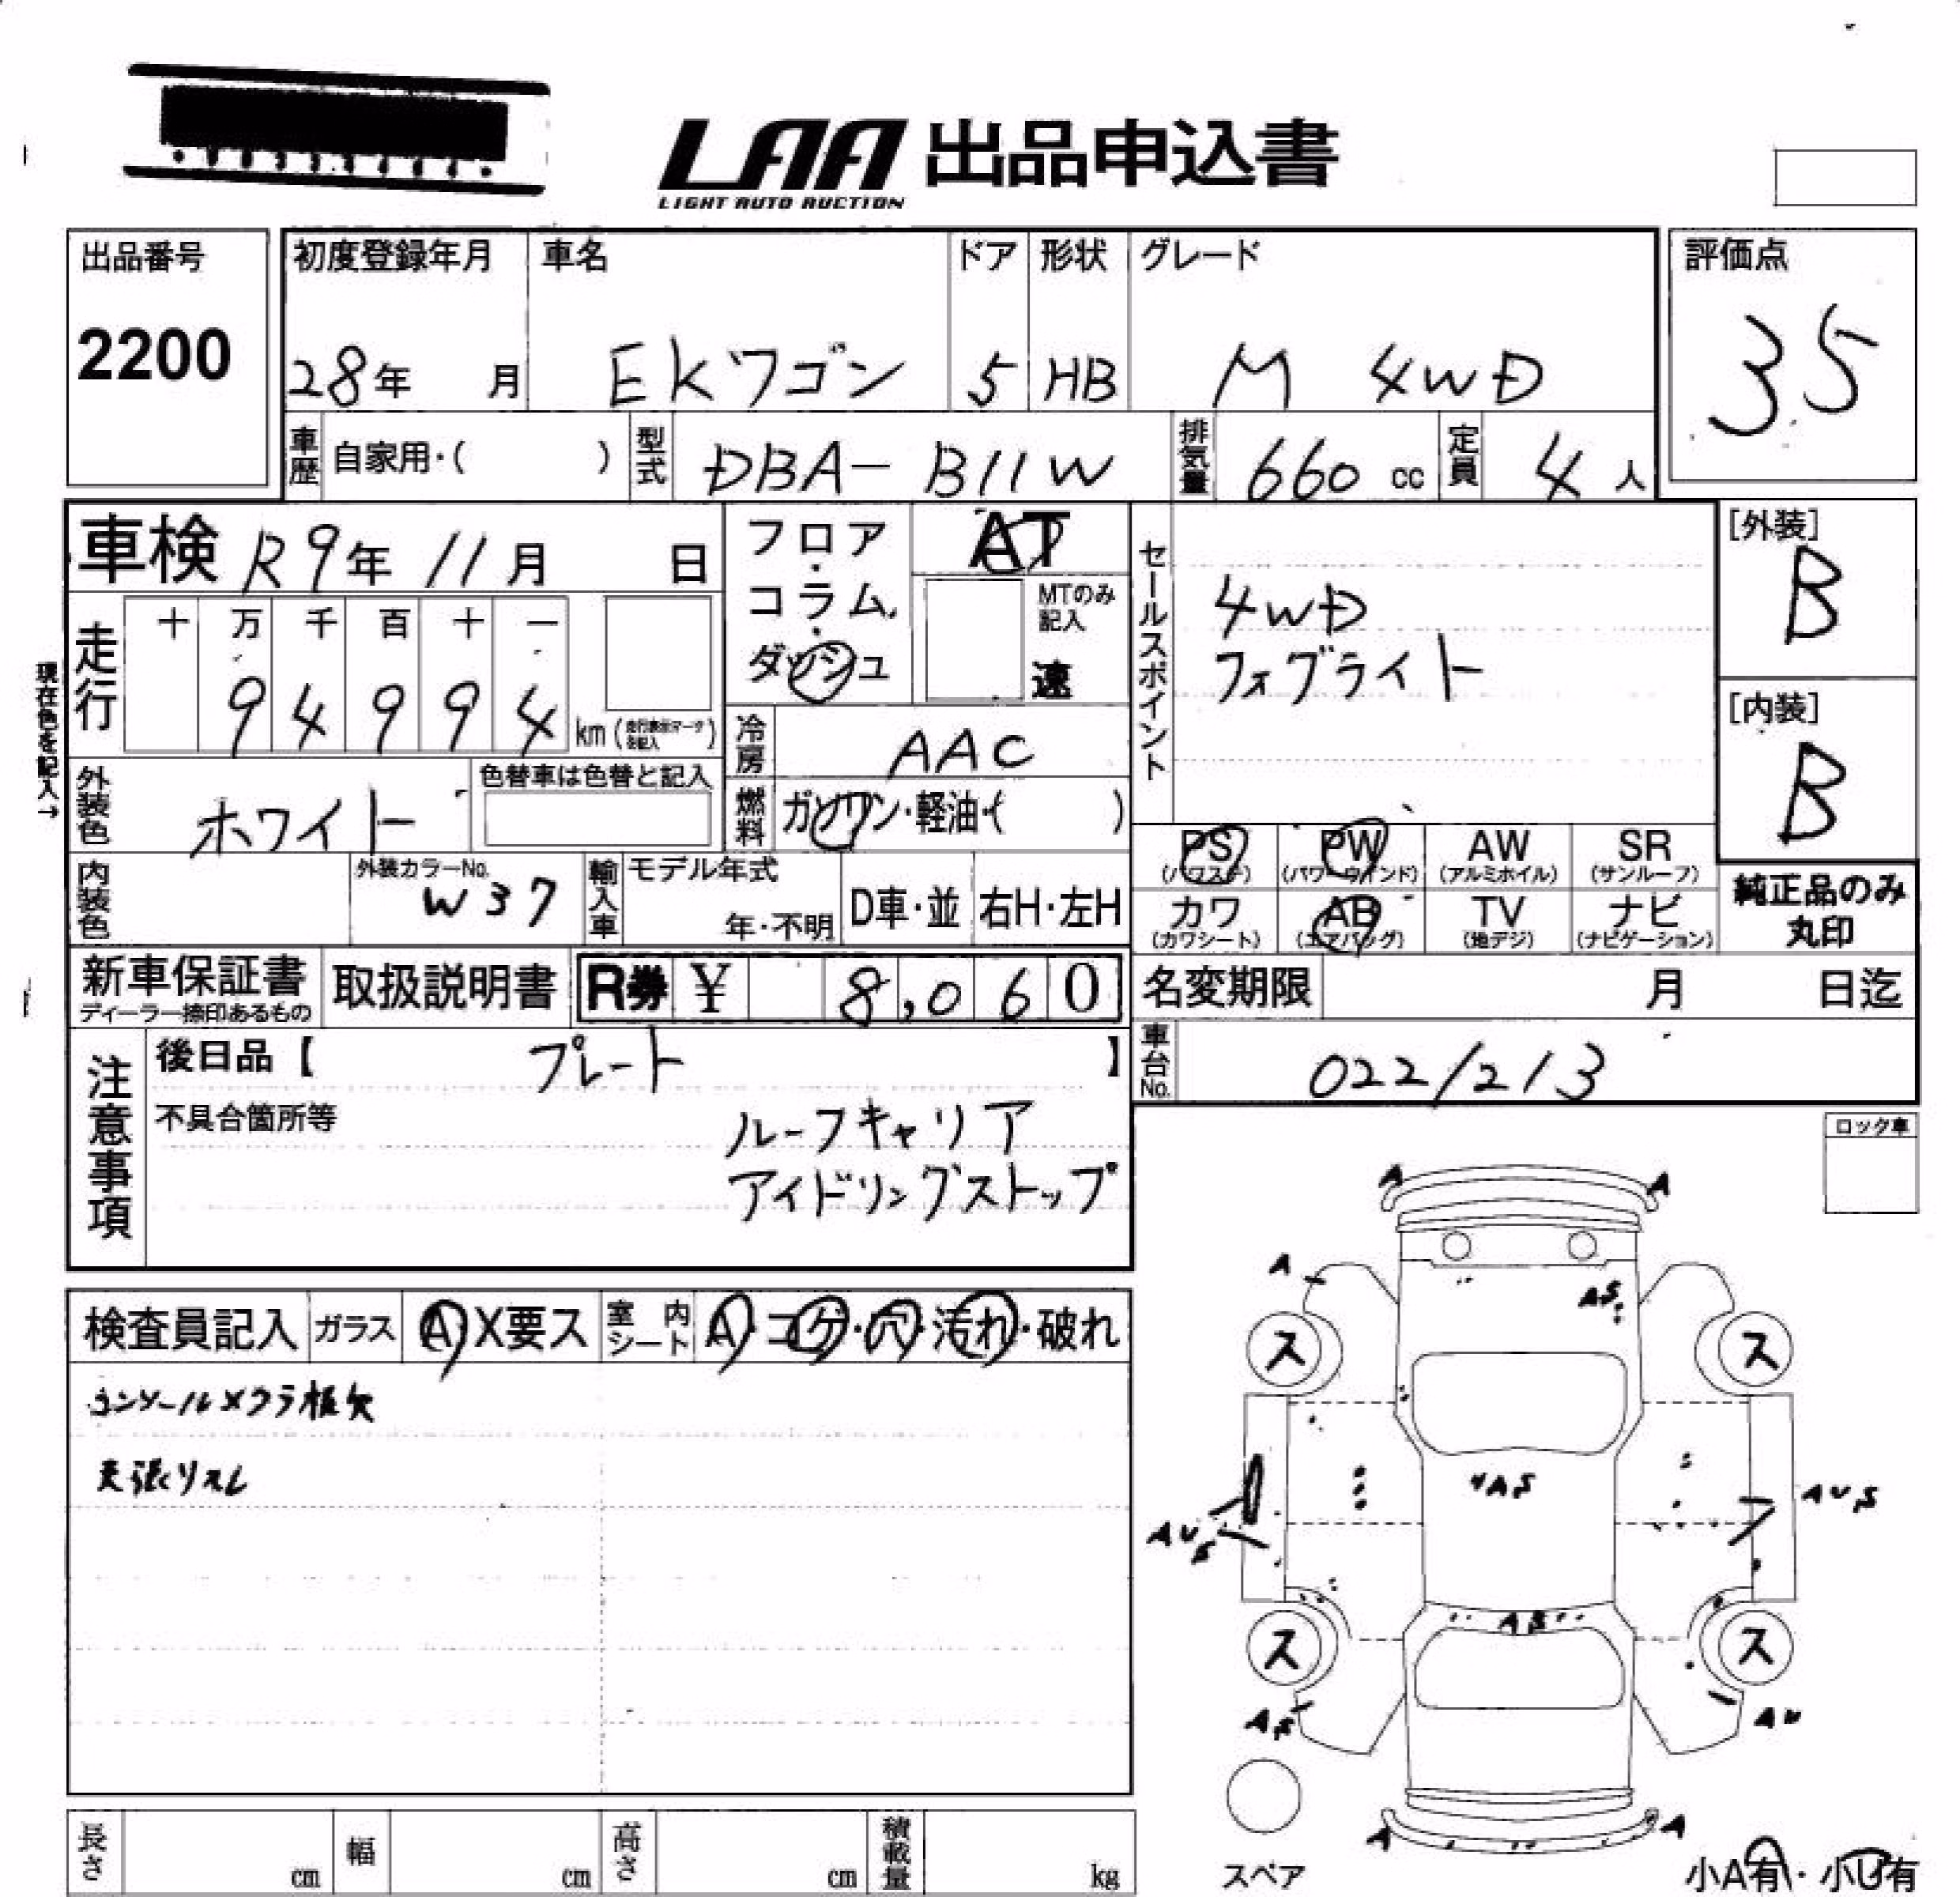 LAA 出品申込書
LIGHT AUTO AUCTION
出品番号
2200
初度登録年月
28年 月
車名
EKワゴン
ドア
5
形状
HB
グレード
M 4WD
評価点
35
車歴 自家用・( )
型式 DBA-B11W
排気量 660 cc
定員 4 人
車検 R9年 11月 日
フロア・コラム・ダッシュ
AT
MTのみ記入
速
セールスポイント
4WD
フォグライト
[外装]
B
[内装]
B
現在色を記入→
走行
十 万 千 百 十 一
9 4 9 9 4 km (走行表示マークを記入)
冷房 AAC
外装色 ホワイト
色替車は色替と記入
燃料 ガソリン・軽油・( )
PS (パワステ)
PW (パワーウインド)
AW (アルミホイル)
SR (サンルーフ)
内装色
外装カラーNo.
W37
輸入車
モデル年式
年・不明
D車・並
右H・左H
カワ (カワシート)
AB (エアバッグ)
TV (地デジ)
ナビ (ナビゲーション)
純正品のみ
丸印
新車保証書
ディーラー捺印あるもの
取扱説明書
R券 ¥ 8,060
名変期限 月 日迄
注意事項
後日品【 プレート 】
車台No. 0221213
不具合箇所等
ルーフキャリア
アイドリングストップ
ロック車
検査員記入
ガラス A X要ス
室内シート A・コゲ・穴・汚れ・破れ
コンソールメクラ板欠
天張リスレ
A A
A
AS
ス ス
AUS
AS
AUS
AS
ス ス
AS
AU
A A
スペア
小A有・小U有
長さ cm
幅 cm
高さ cm
積載量 kg